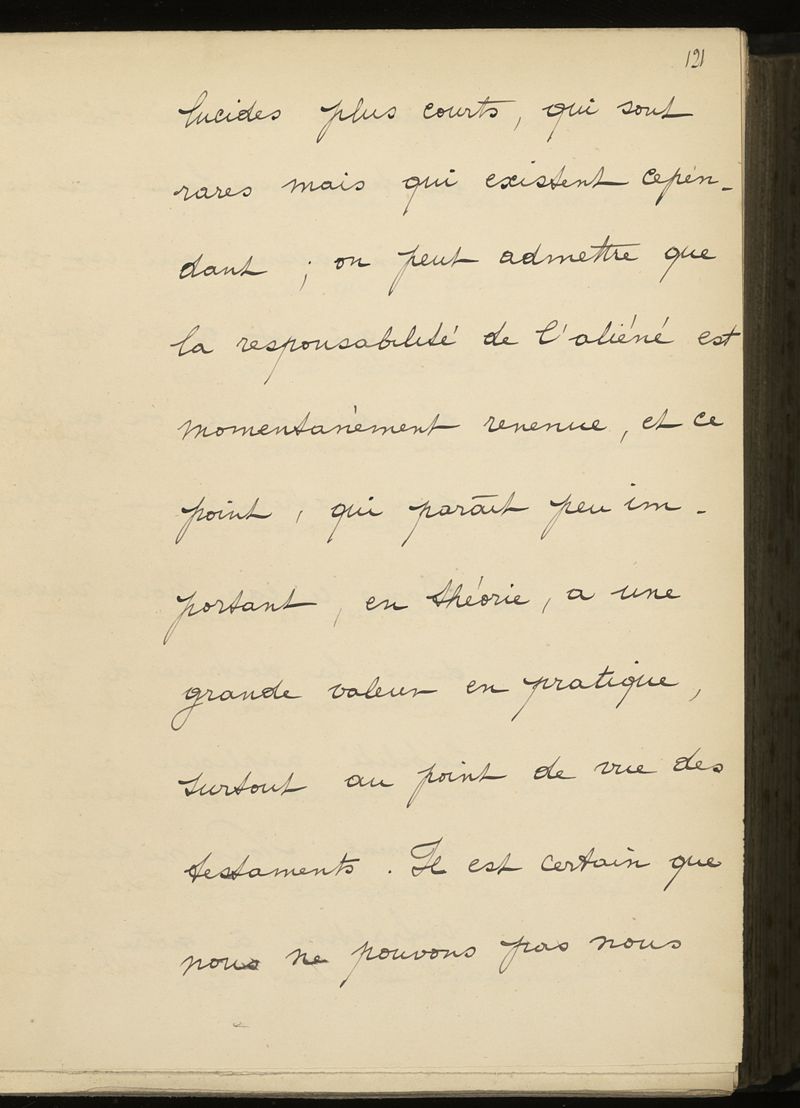 121
lucides plus courts, qui sont
rares mais qui existent cepen-
dant ; on peut admettre que
la responsabilité de l'aliéné est
momentanément revenue, et ce
point, qui parait peu im-
portant, en théorie, a une
grande valeur en pratique,
surtout au point de vue des
testaments. Il est certain que
nous ne pouvons pas nous